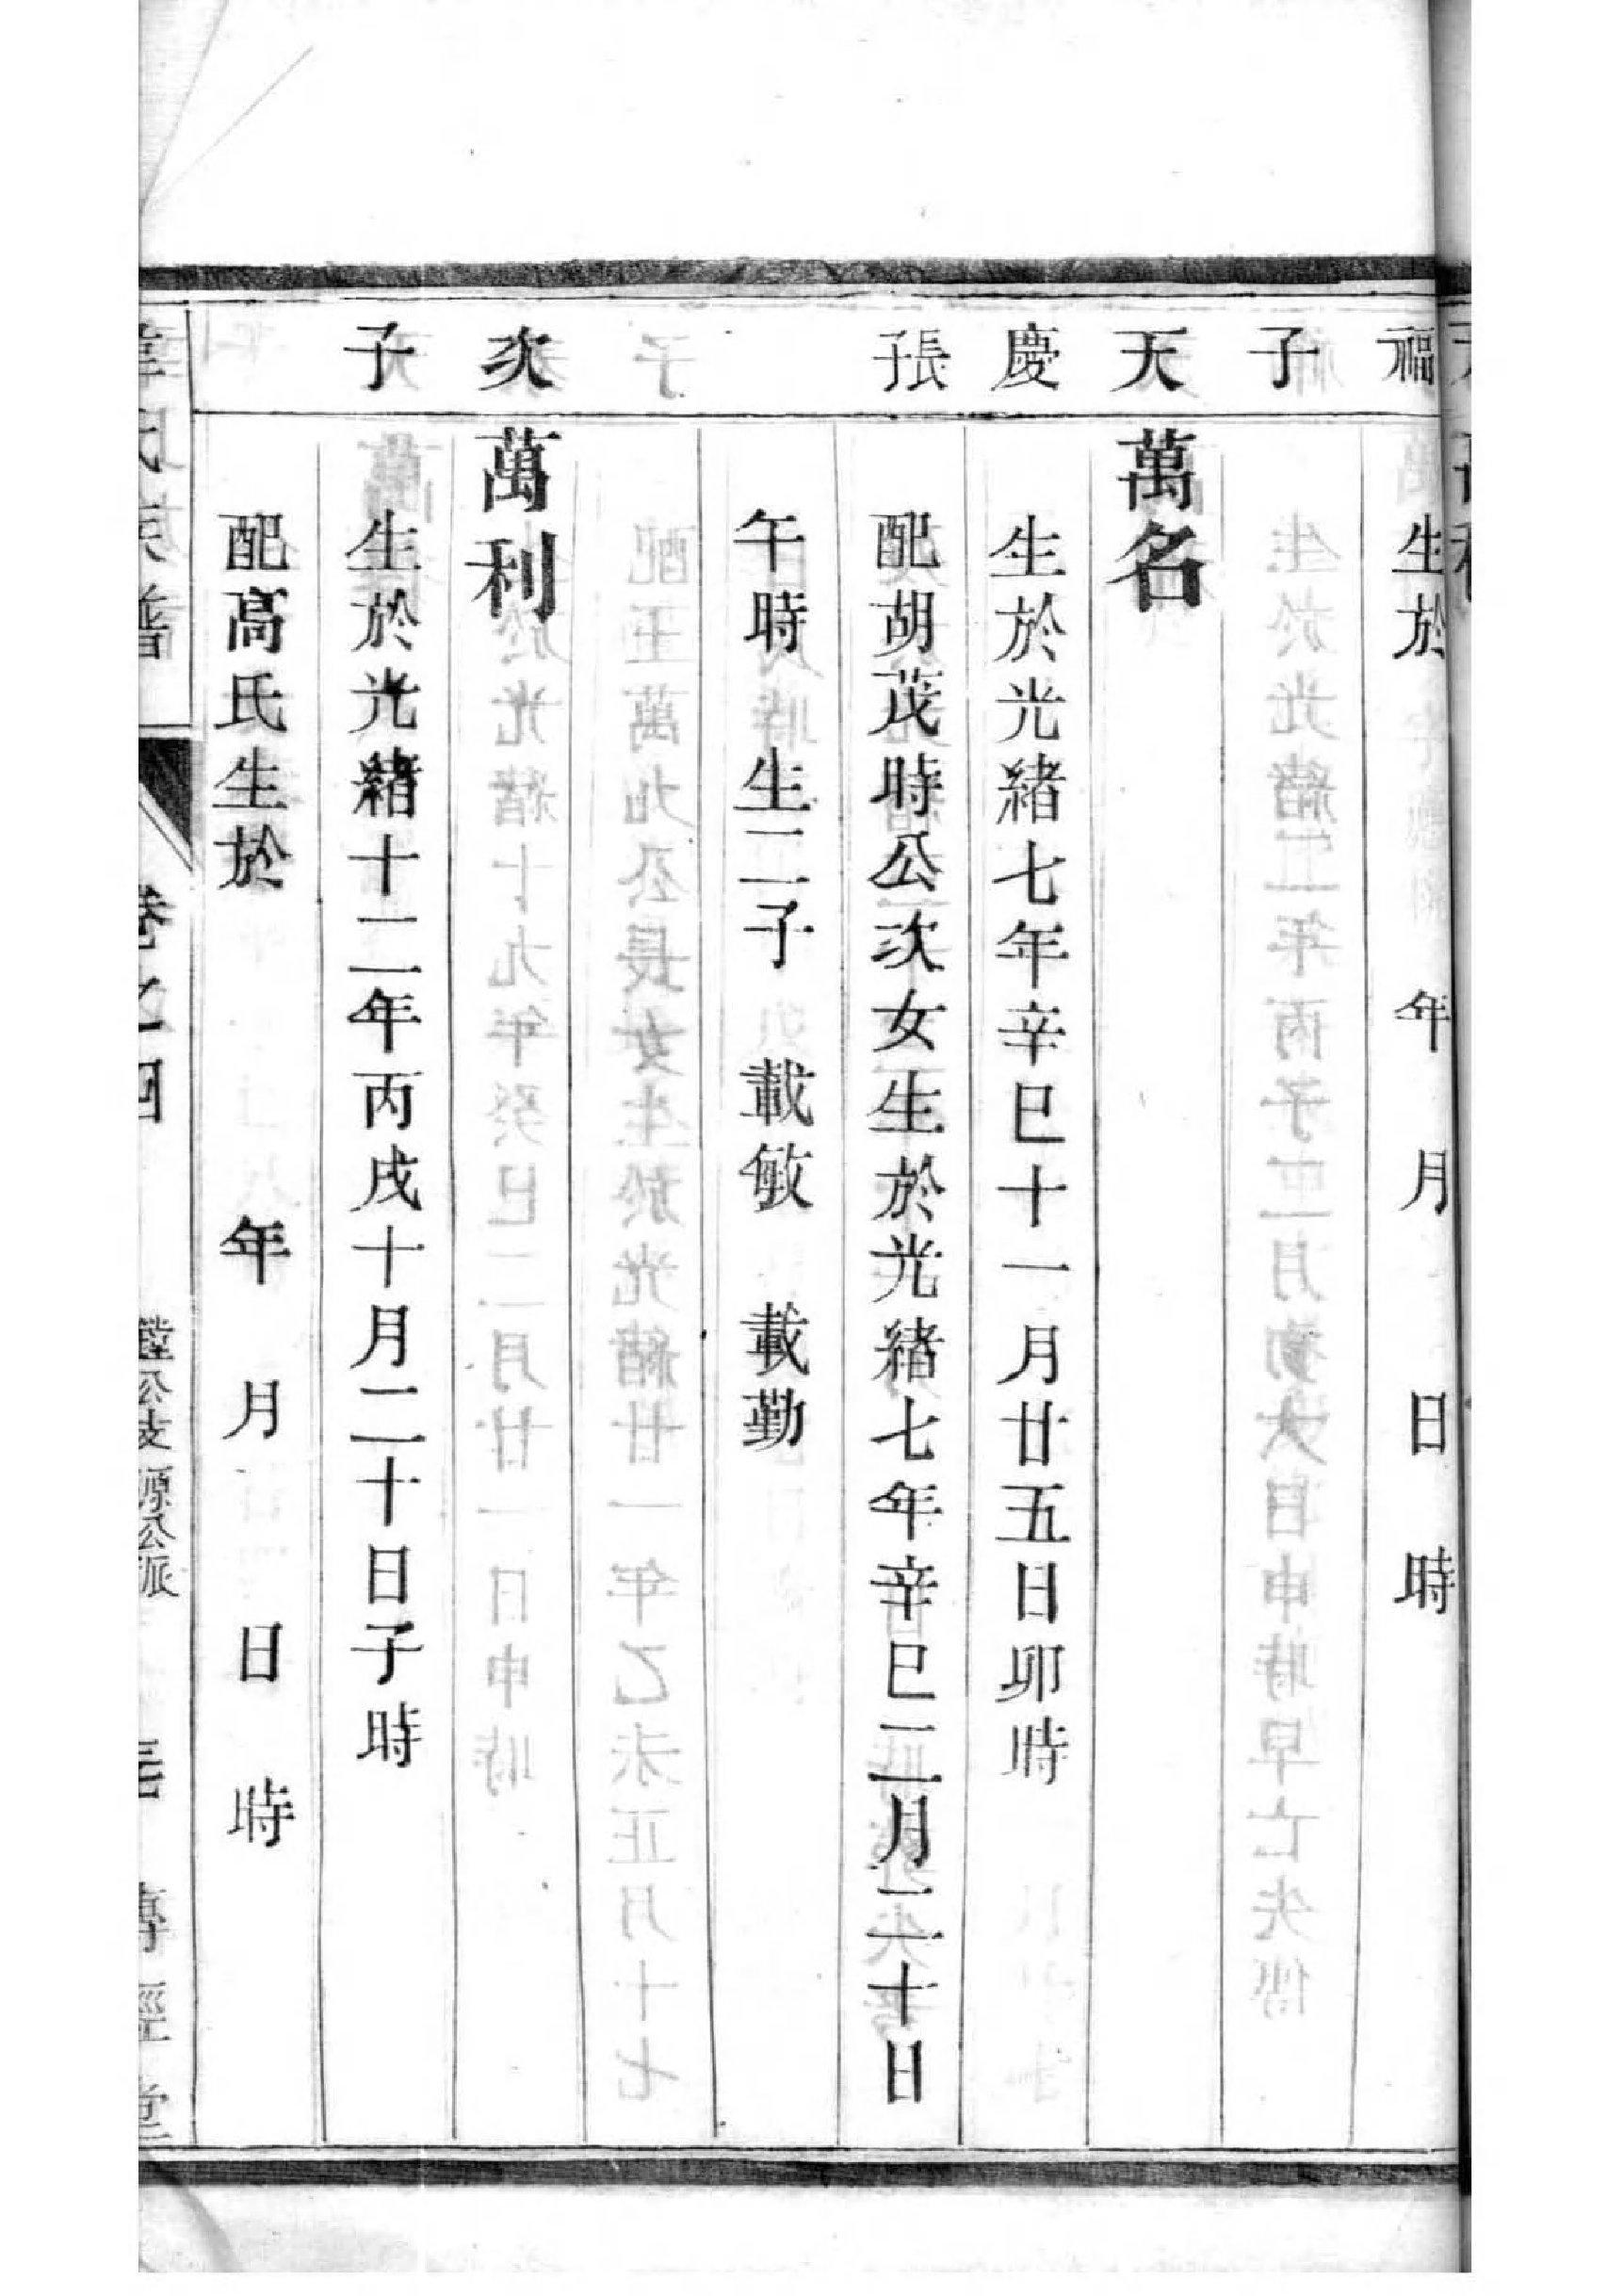 福 生於 年 月 日 時
子
天 萬名
慶 生於光緒七年辛巳十一月廿五日卯時
張 配胡茂時公次女生於光緒七年辛巳二月二十日
午時生二子 載敏 載勤
次 萬利
子 生於光緒十二年丙戌十月二十日子時
配高氏生於 年 月 日 時
韋氏族譜 卷之四 公支源公派 傳經堂